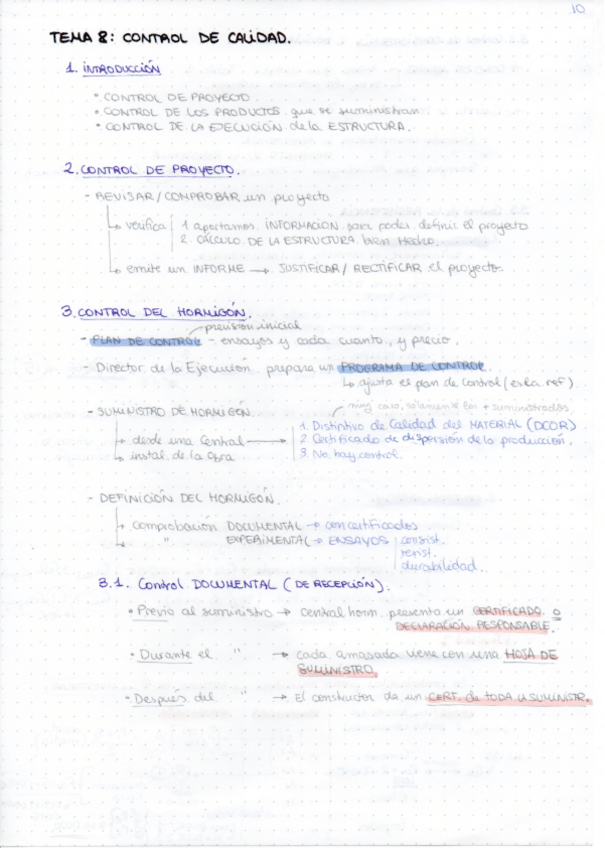 10
TEMA 8: CONTROL DE CALIDAD.
1. INTRODUCCIÓN
• CONTROL DE PROYECTO
• CONTROL DE LOS PRODUCTOS que se suministran
• CONTROL DE LA EJECUCIÓN de la ESTRUCTURA.
2. CONTROL DE PROYECTO.
- REVISAR/COMPROBAR un proyecto
↳ verifica 1. aportamos INFORMACIÓN para poder definir el proyecto
2. CÁLCULO DE LA ESTRUCTURA bien Hecho.
↳ emite un INFORME → JUSTIFICAR/ RECTIFICAR el proyecto.
3. CONTROL DEL HORMIGÓN.
previsión inicial
- PLAN DE CONTROL - ensayos y cada cuanto, y precio.
- Director de la Ejecución prepara un PROGRAMA DE CONTROL
↳ ajusta el plan de control (es la ref)
muy caro, solamente los + suministrados
- SUMINISTRO DE HORMIGÓN
1. Distintivo de Calidad del MATERIAL (DCOR)
↳ desde una Central → 2. Certificado de dispersión de la producción.
↳ instal. de la Obra 3. No hay control.
- DEFINICIÓN DEL HORMIGÓN.
↳ comprobación DOCUMENTAL → con certificados
↳ " EXPERIMENTAL → ENSAYOS consist.
resist.
durabilidad.
3.1. Control DOCUMENTAL (DE RECEPCIÓN).
• Previo al suministro → central horm. presenta un CERTIFICADO o
DECLARACIÓN RESPONSABLE.
• Durante el " → cada amasada viene con una HOJA DE
SUMINISTRO.
• Después del " → El constructor da un CERT. de TODO LO SUMINISTR.